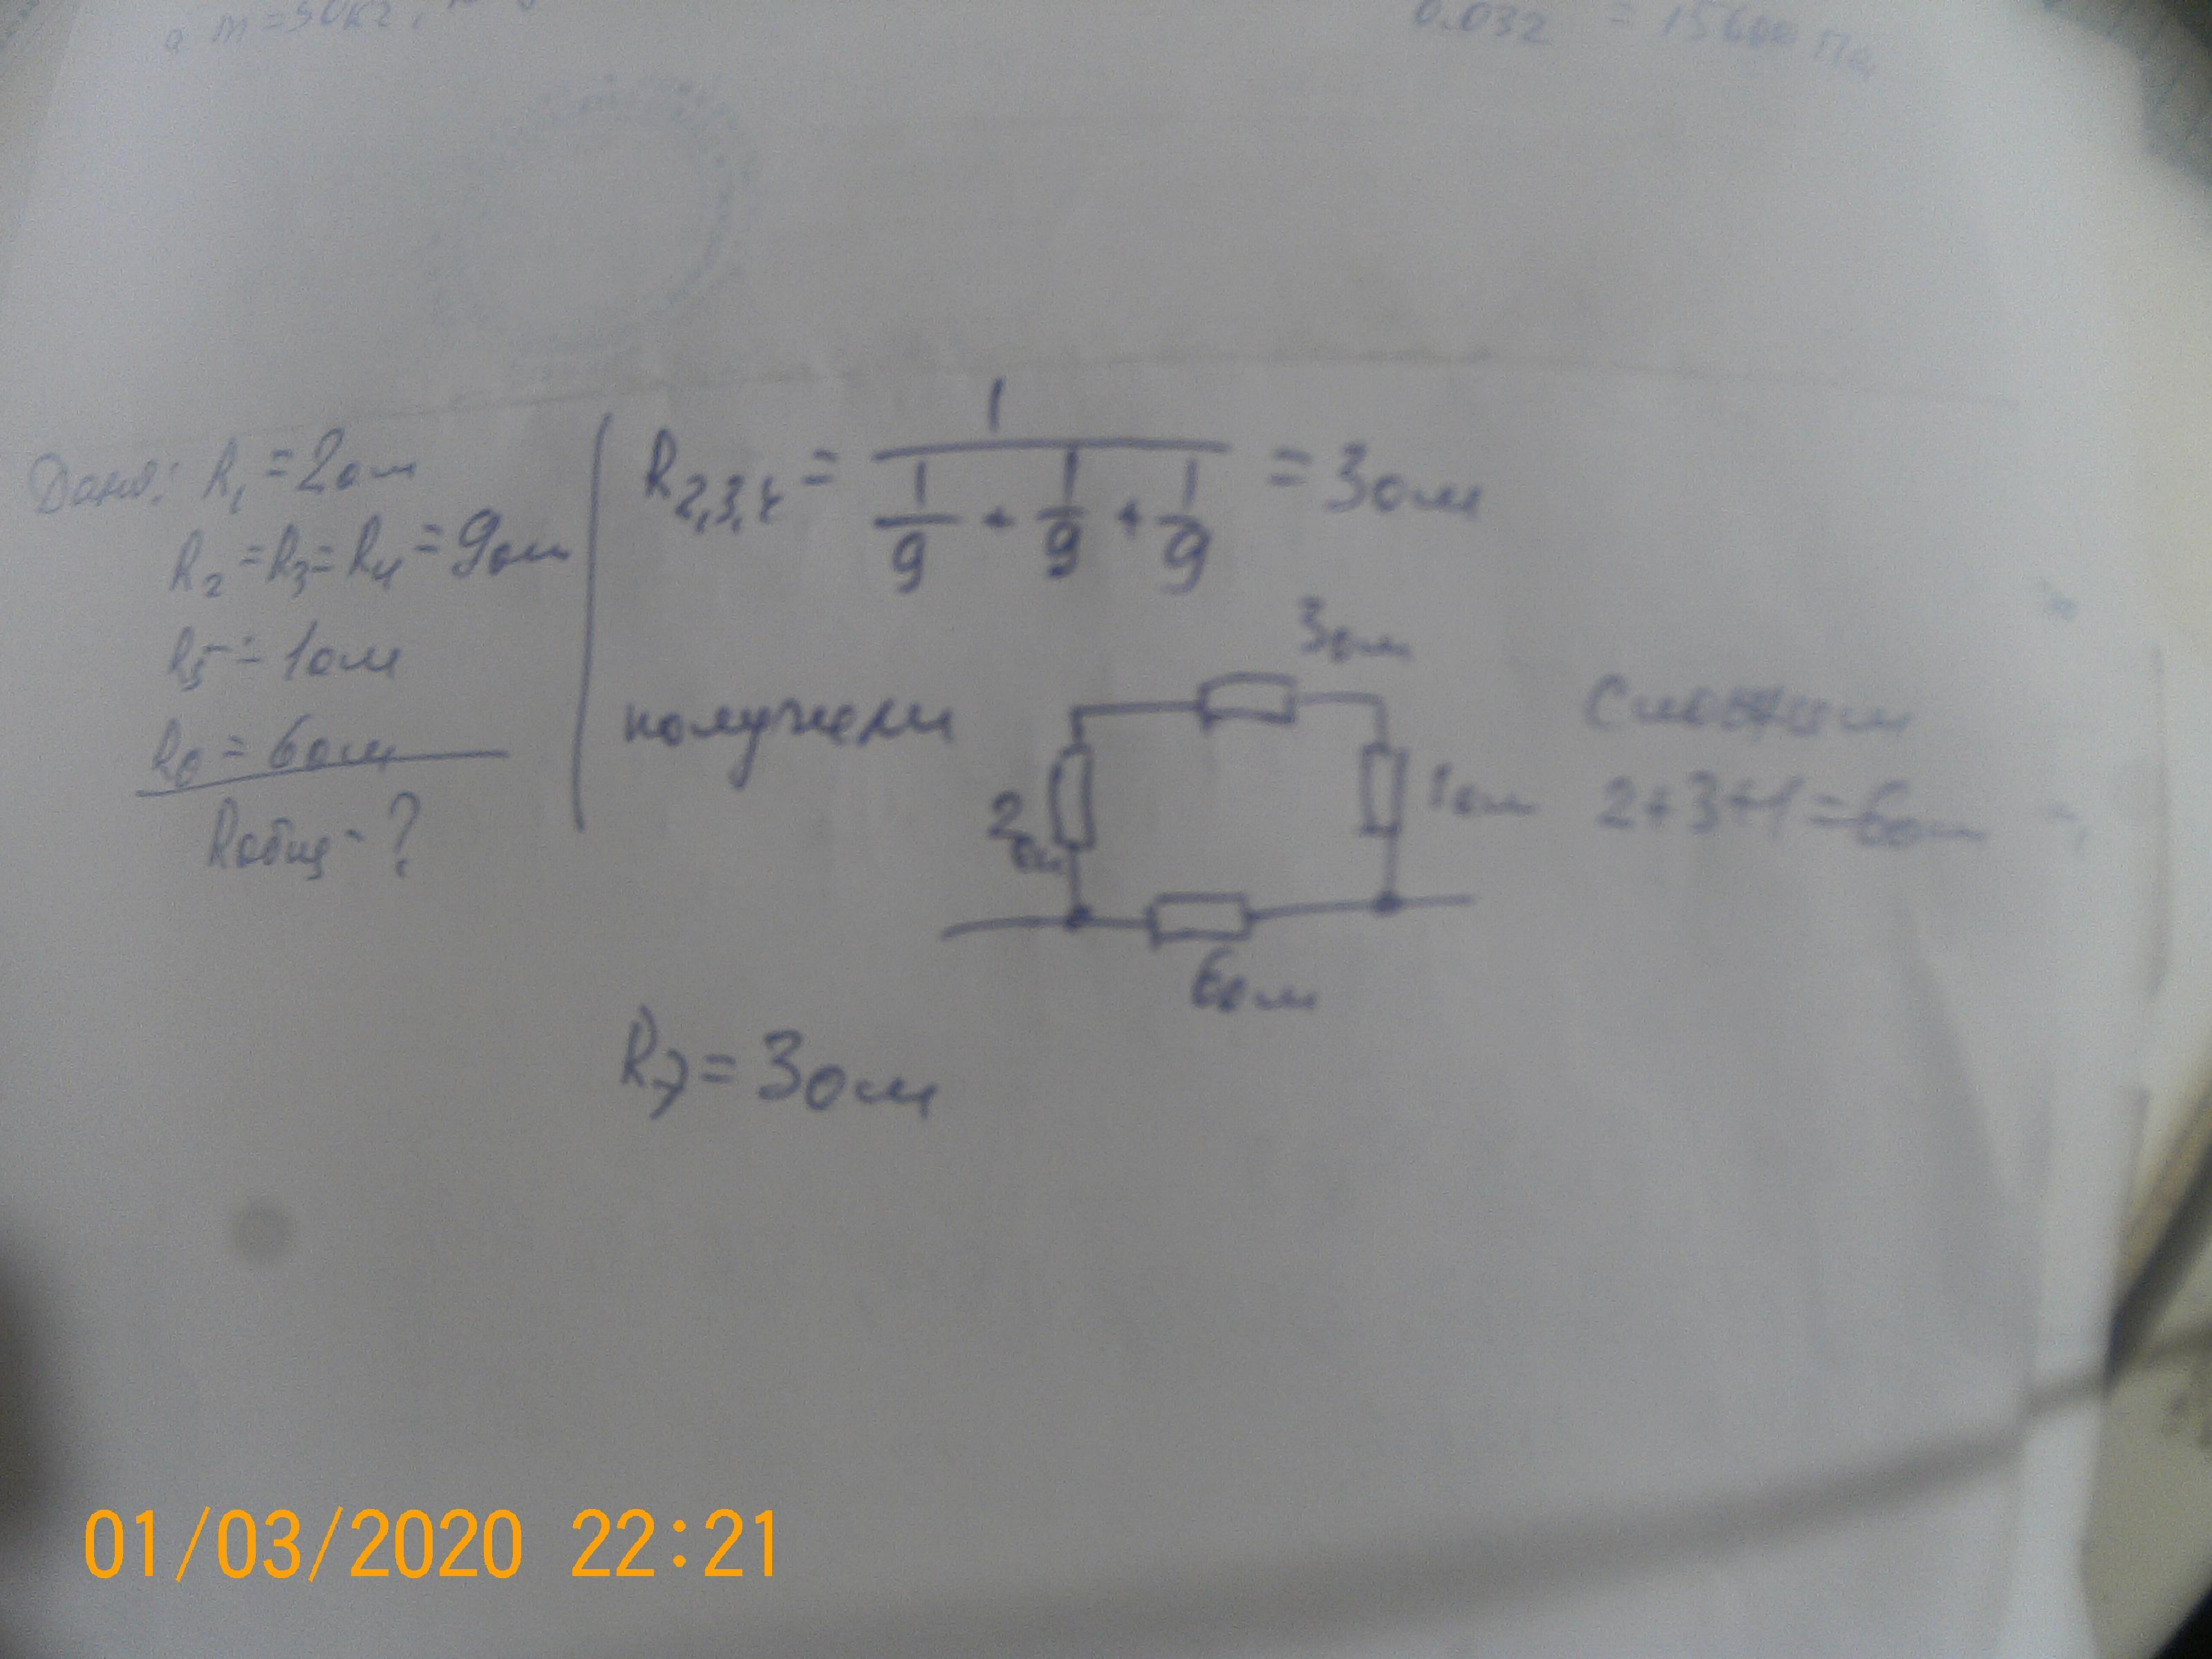 m=50кг,
0.032 =
Дано: R₁ = 2ом
R₂ = R₃ = R₄ = 9ом
R₅ = 1ом
R₆ = 6ом
Rобщ - ?
R₂,₃,₄ = 1 / (1/9 + 1/9 + 1/9) = 3ом
получили
3ом
2ом
1ом
6ом
Сложим
2+3+1=6ом
RЭ = 3ом
01/03/2020 22:21